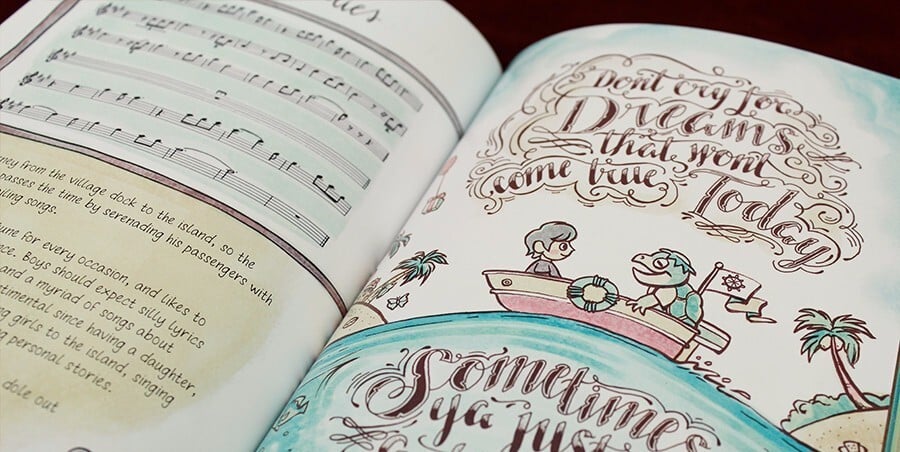 ney from the village dock to the island, so the
passes the time by serenading his passengers with
iling songs.
une for every occasion, and likes to
ce. Boys should expect silly lyrics
and a myriad of songs about
timental since having a daughter,
g girls to the island, singing
g personal stories.
dole out
Don't cry for
Dreams
that won't
come true
Today
Sometimes
ya just